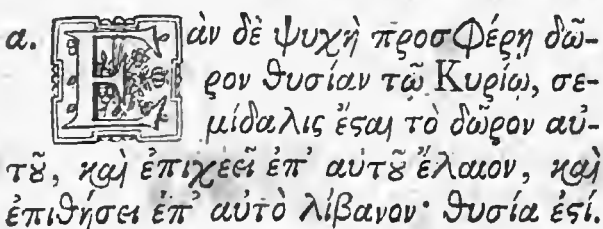 α. Εὰν δὲ ψυχὴ προσφέρῃ δῶ-
ρον θυσίαν τῷ Κυρίῳ, σε-
μίδαλις ἔςαι τὸ δῶρον αὐ-
τȣ͂, καὶ ἐπιχεεῖ ἐπ' αὐτȣ̀ ἔλαιον, καὶ
ἐπιθήσει ἐπ' αὐτὸ λίβανον· θυσία ἐςί.